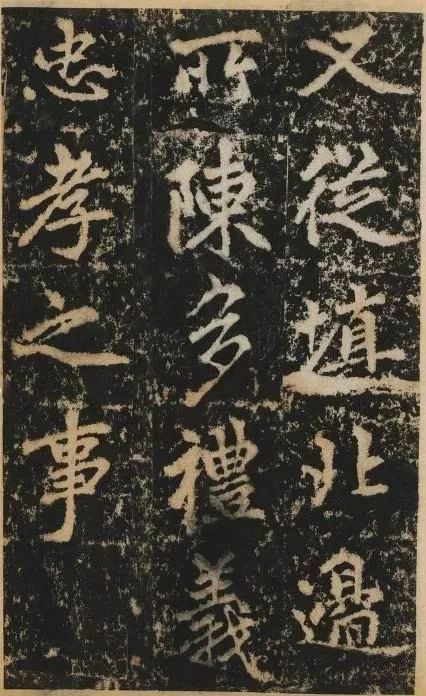 又從埴北過
所陳多禮義
忠孝之事